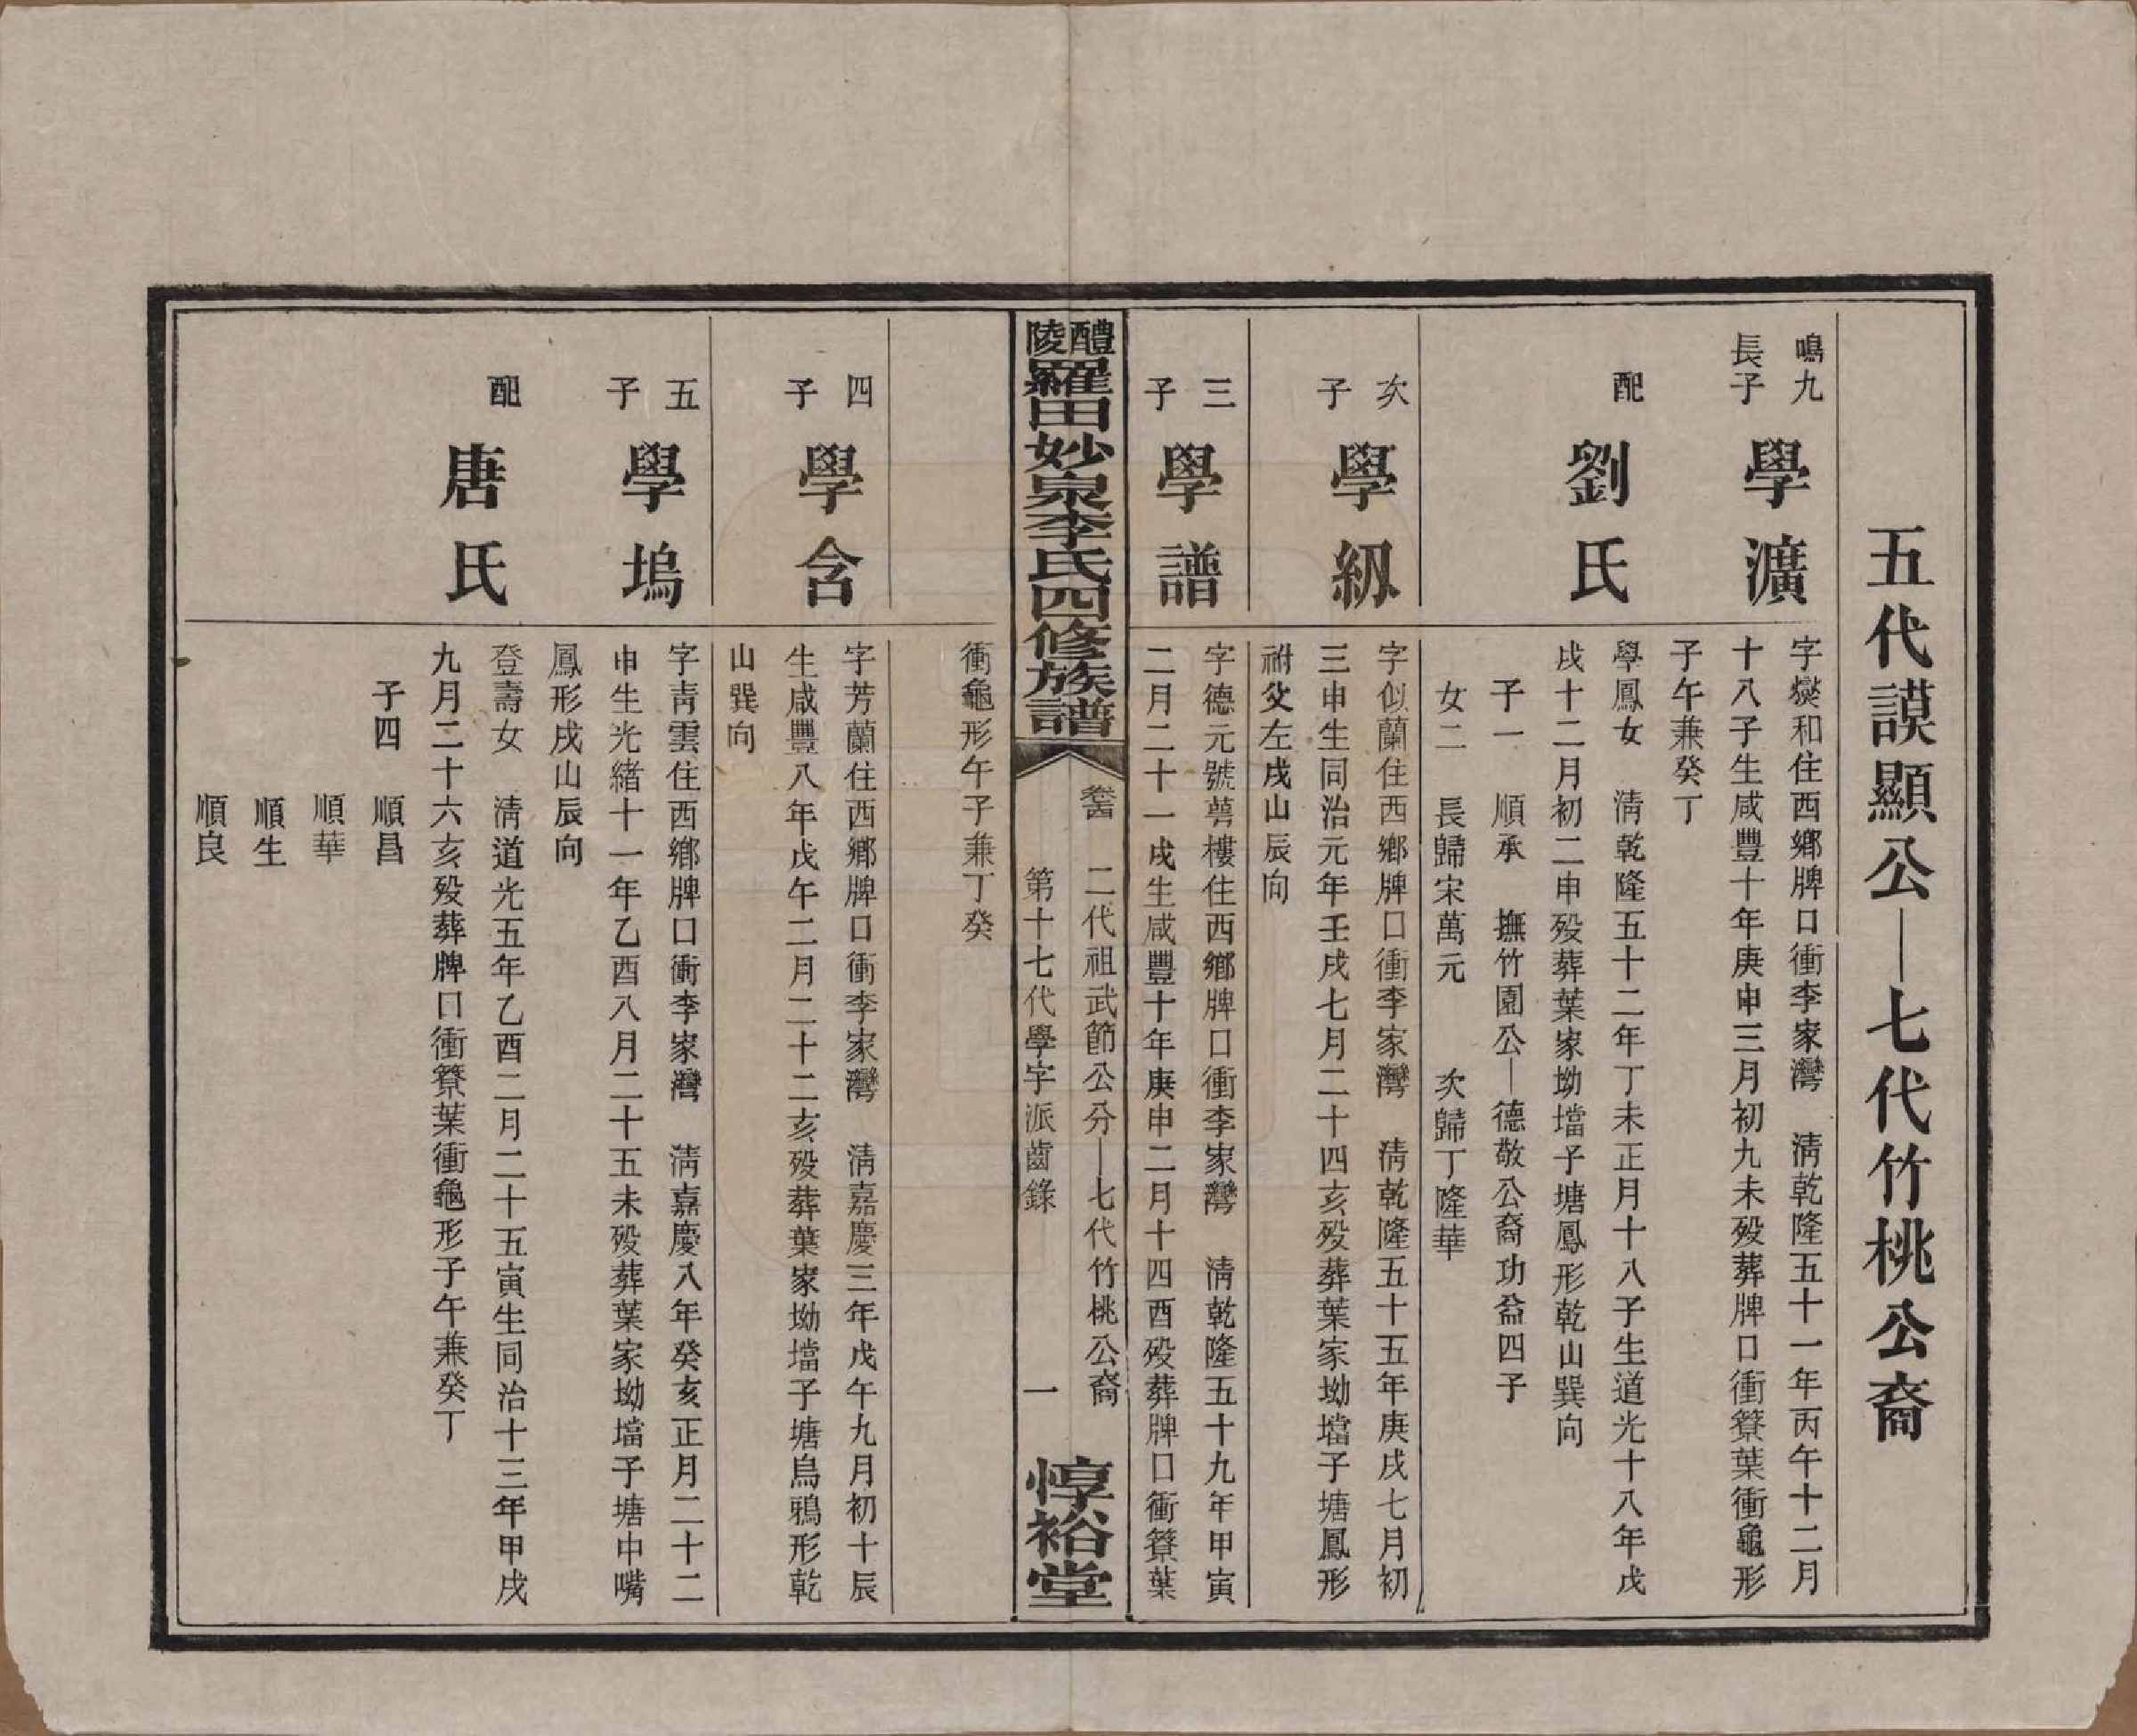 五代謨顯公—七代竹桃公裔
鳴九
長子
學瀇
字爕和住西鄉牌口衝李家灣 清乾隆五十一年丙午十二月
十八子生咸豐十年庚申三月初九未歿葬牌口衝簝葉衝龜形
子午兼癸丁
配
劉氏
學鳳女 清乾隆五十二年丁未正月十八子生道光十八年戊
戌十二月初二申歿葬葉家坳壋子塘鳳形乾山巽向
子一 順承 撫竹園公—德敬公裔功益四子
女二 長歸宋萬元 次歸丁隆華
次
子
學級
字似蘭住西鄉牌口衝李家灣 清乾隆五十五年庚戌七月初
三申生同治元年壬戌七月二十四亥歿葬葉家坳壋子塘鳳形
祔父左戌山辰向
三
子
學譜
字德元號萼樓住西鄉牌口衝李家灣 清乾隆五十九年甲寅
二月二十一戌生咸豐十年庚申二月十四酉歿葬牌口衝簝葉
醴陵羅田妙泉李氏四修族譜
卷 二代祖武節公分—七代竹桃公裔
第十七代學字派齒錄 一
惇裕堂
衝龜形午子兼丁癸
四
子
學含
字芳蘭住西鄉牌口衝李家灣 清嘉慶三年戊午九月初十辰
生咸豐八年戊午二月二十二亥歿葬葉家坳壋子塘烏鴉形乾
山巽向
五
子
學塢
字靑雲住西鄉牌口衝李家灣 清嘉慶八年癸亥正月二十二
申生光緒十一年乙酉八月二十五未歿葬葉家坳壋子塘中嘴
鳳形戌山辰向
配
唐氏
登壽女 清道光五年乙酉二月二十五寅生同治十三年甲戌
九月二十六亥歿葬牌口衝簝葉衝龜形子午兼癸丁
子四 順昌
順華
順生
順良